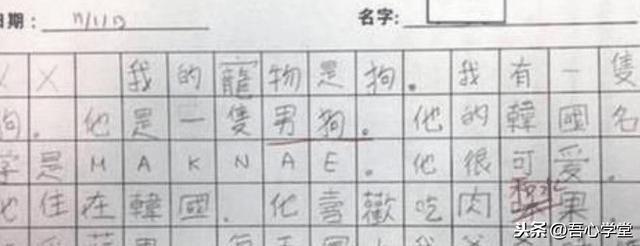 日期: 11/11日 名字:
XX 我的寵物是狗。我有一隻
狗。他是一隻男狗。他的韓國名
字是MAKNAE。他很可爱。
他住在韓國。他喜歡吃肉和水果
头条@吾心学堂